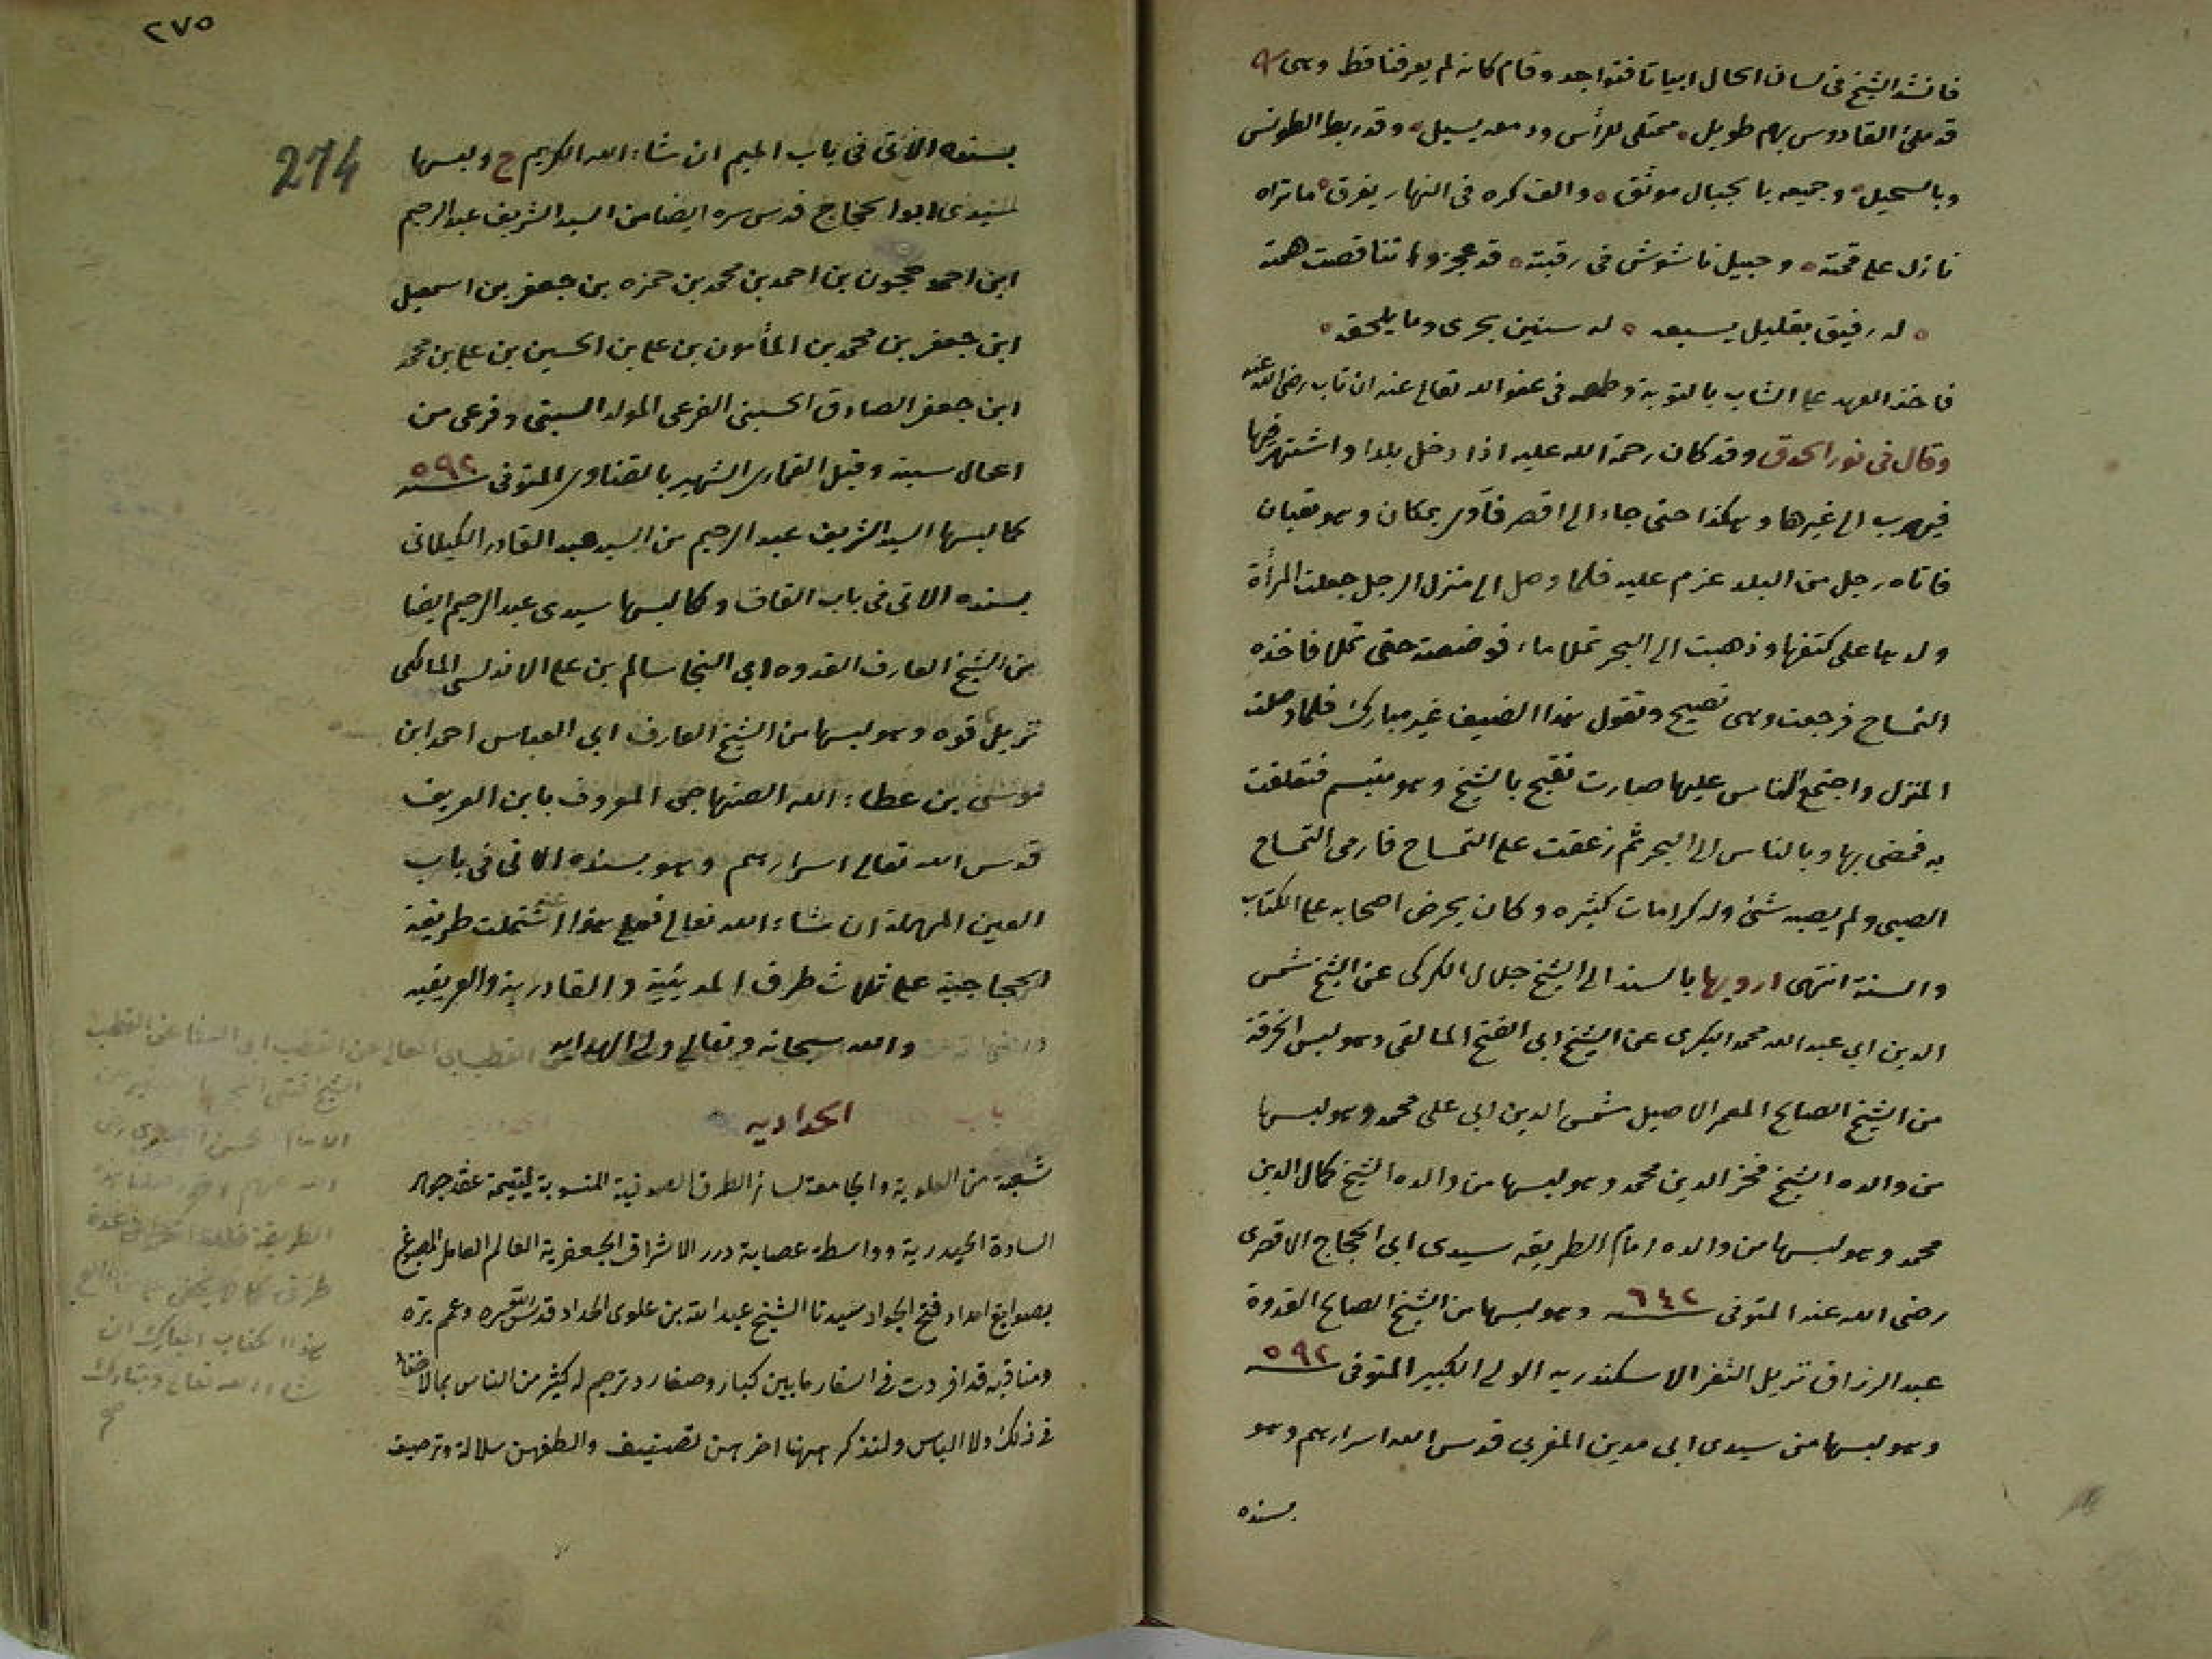 فانشد الشيخ فى لسان الحال ابياتا فتواجد وقام كانه لم يعرفنا قط وهى
قد ملئ القادوس بهم طويل ممتلى للرأس ودمعه يسيل وقد ربط الطونس
وبالسحيل وجميعه بالحبال موثق والف كره فى النهار يغرق ما تراه
نازل على قمته وحبيل ناشوش فى رقبته قد عجز ولا تناقصت همته
له رفيق بقليل يسبقه له سنين يجرى وما يلحقه
فاخذ العهد على الشاب بالتوبة وطمعه فى عفو الله تعالى عنه ان تاب رضى الله عنه
وقال فى نور الحدق وقد كان رحمة الله عليه اذا دخل بلدا واشتهر فيها
فيهرب الى غيرها وهكذا حتى جاء الى اقصر فآوى بمكان وهو تعبان
فاتاه رجل من البلد عزم عليه فلما وصل الى منزل الرجل جعلت المرأة
ولدها على كتفها وذهبت الى البحر تملا ماء فوضعته حتى تملا فاخذه
التمساح فرجعت وهى تصيح وتقول هذا الضيف غير مبارك فلما وصلت
المنزل واجتمع الناس عليها صارت تقبح بالشيخ وهو متبسم فتعلقت
به فمضى بها وبالناس الى البحر ثم زعقت على التمساح فارمى التمساح
الصبى ولم يصبه شئ وله كرامات كثيره وكان يحرض اصحابه على الكتاب
والسنة انتهى ارويها بالسند الى الشيخ جلال الكركى عن الشيخ شمس
الدين ابى عبد الله محمد البكرى عن الشيخ ابى الفتح المالقى وهو لبس الخرقة
من الشيخ الصالح المعمر الاصيل شمس الدين ابى على محمد وهو لبسها
من والده الشيخ فخر الدين محمد وهو لبسها من والده الشيخ كمال الدين
محمد وهو لبسها من والده امام الطريقه سيدى ابى الحجاج الاقصرى
رضى الله عنه المتوفى سنة ٦٤٢ وهو لبسها من الشيخ الصالح القدوة
عبد الرزاق نزيل الثغر الاسكندريه الولى الكبير المتوفى سنة ٥٩٢
وهو لبسها من سيدى ابى مدين المغربى قدس الله اسرارهم وهو
بسنده
٢٧٥
274
بسنده الآتى فى باب الميم ان شاء الله الكريم ح ولبسها
سيدى ابو الحجاج قدس سره ايضا من السيد الشريف عبد الرحيم
ابن احمد حجون بن احمد بن محمد بن حمزه بن جعفر بن اسمعيل
ابن جعفر بن محمد بن المأمون بن على بن الحسين بن على بن محمد
ابن جعفر الصادق الحسينى الفرعى المولد السبتى وفرعى من
اعمال سبتة وقيل الغمارى الشهير بالقناوى المتوفى سنة ٥٩٢
كما لبسها السيد الشريف عبد الرحيم من السيد عبد القادر الكيلانى
بسنده الاتى فى باب القاف وكما لبسها سيدى عبد الرحيم ايضا
من الشيخ العارف القدوه ابى النجا سالم بن على الاندلسى المالكى
نزيل قوه وهو لبسها من الشيخ العارف ابى العباس احمد ابن
موسى بن عطاء الله الصنهاجى المعروف بابن العريف
قدس الله تعالى اسرارهم وهو بسنده الاتى فى باب
العين المهملة ان شاء الله تعالى فعلى هذا اشتملت طريقة
الحجاجية على ثلاث طرق المدينية والقادرية والعريفيه
والله سبحانه وتعالى ولى الهدايه
الحداديه
شعبة من العلوية والجامعة لسائر الطرق الصوفية المنسوبة ليتيمة عقد جواهر
السادة الحيدرية وواسطه عصابة درر الاشراق الجعفرية العالم العامل المصبوغ
بصوابغ امداد فتح الجواد سيدنا الشيخ عبد الله بن علوى الحداد قدس الله سره وعم بره
ومناقبه قد افردت فى اسفار ما بين كبار وصغار وترجم له كثير من الناس بما لا خفاء
فى ذلك ولا الباس ولنذكر ههنا اخرهن تصنيف والطفهن سلالة وترصيف
هذا الكتاب المبارك ان
شاء الله تعالى وتبارك
صح